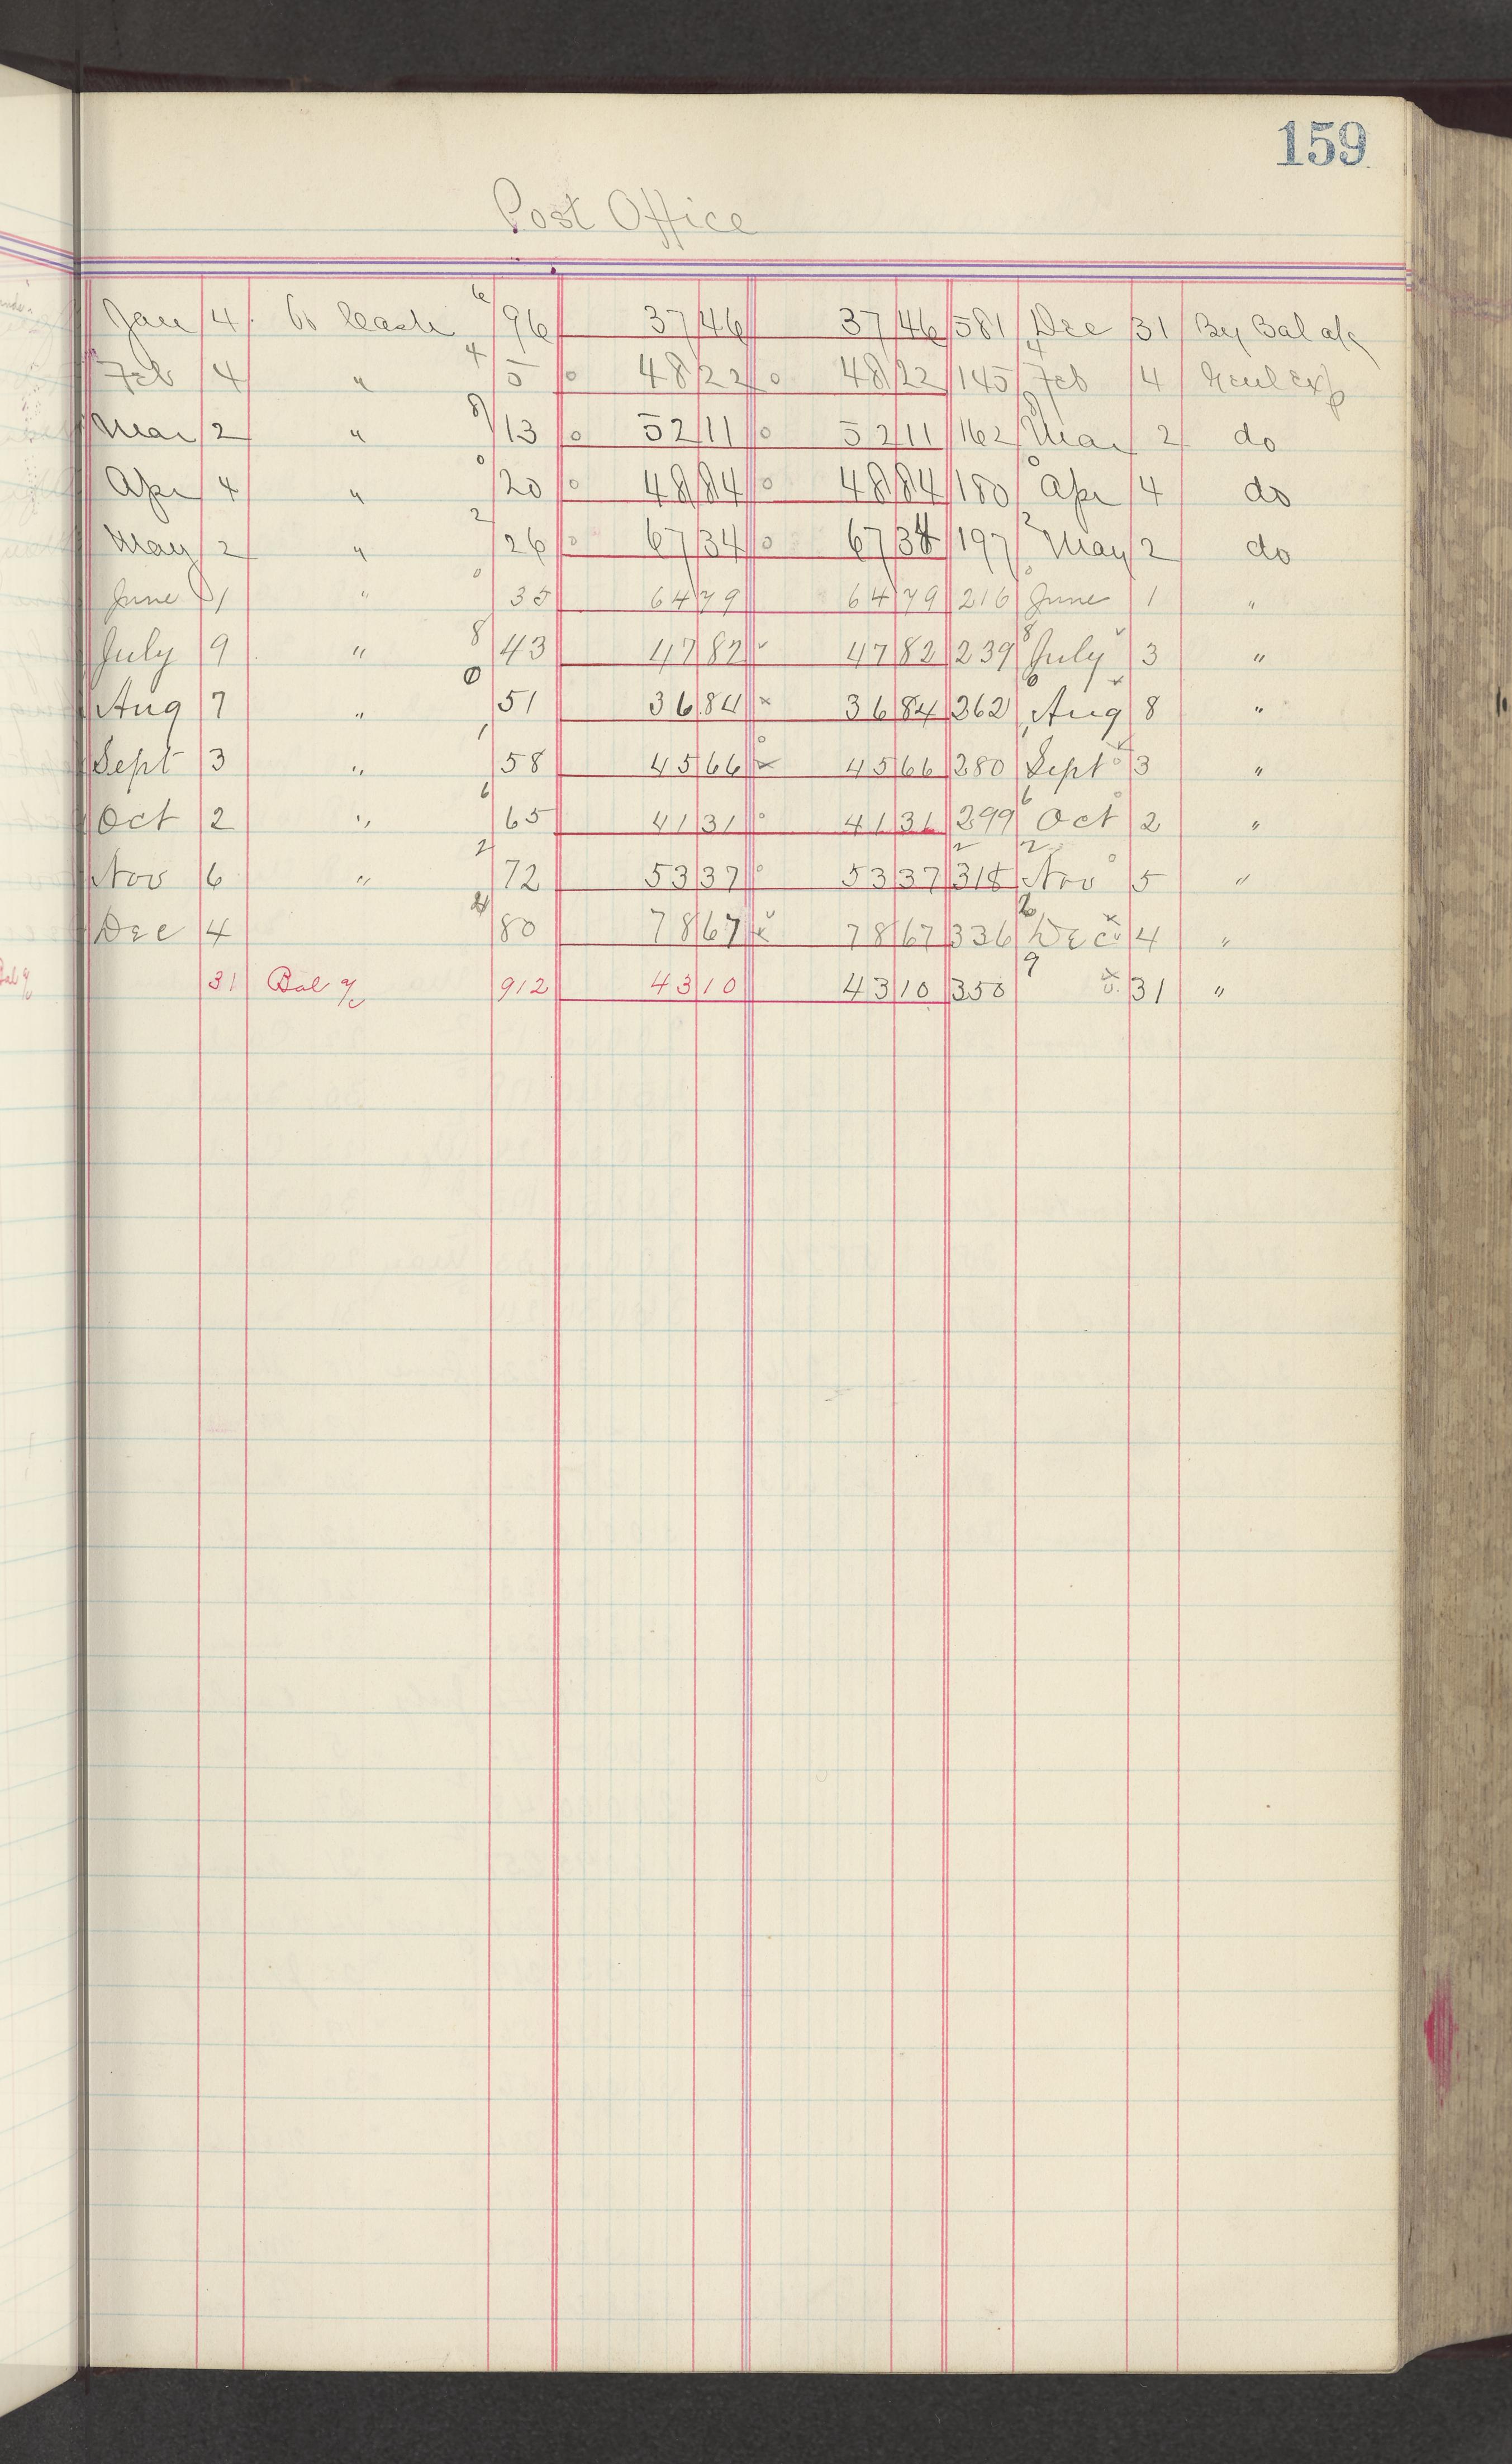 159
Post Office
Jan 4 To Cash 6 96 37 46 37 46 581 Dec 31 By Bal a/c
Feb 4 " 4 5 48 22 48 22 145 4 Feb 4 Genl Exp
Mar 2 " 8 13 52 11 52 11 162 8 Mar 2 do
Apr 4 " 0 20 48 84 48 84 180 0 Apr 4 do
May 2 " 2 26 67 34 67 34 197 2 May 2 do
June 1 " 0 35 64 79 64 79 216 0 June 1 "
July 9 " 8 43 47 82 47 82 239 8 July 3 "
Aug 7 " 0 51 36 84 36 84 262 0 Aug 8 "
Sept 3 " 1 58 45 66 45 66 280 1 Sept 3 "
Oct 2 " 6 65 41 31 41 31 299 6 Oct 2 "
Nov 6 " 2 72 53 37 53 37 318 2 Nov 5 "
Dec 4 80 78 67 78 67 336 Dec 4 "
31 Bal a/c 912 43 10 43 10 350 9 31 "